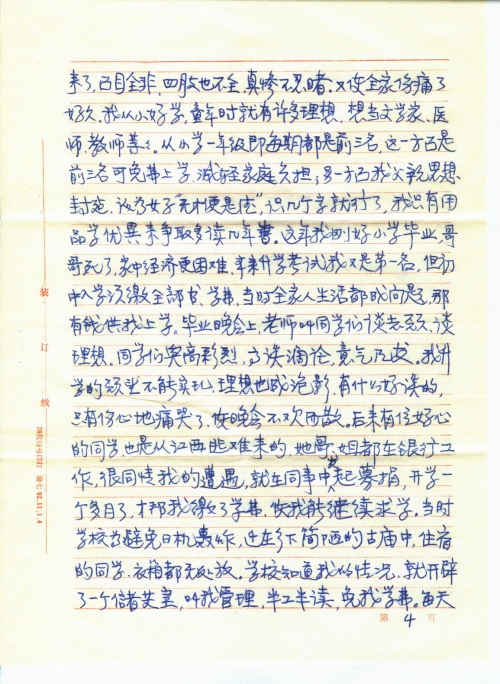 来了,已面目全非,四肢也不全,真惨不忍睹。又使全家伤痛了
好久。我从小好学,童年时就有许多理想,想当文学家、医
师、教师等々。从小学一年级即每期都是前三名,这一方面是
前三名可免费上学,减轻家庭负担;另一方面我父亲思想
封建,认为女子“无才便是德”,识几个字就行了,我只有用
品学优异来争取多读几年书。这年我刚好小学毕业,哥
哥死了,家中经济更困难,本来升学考试我又是第一名,但初
中入学须缴全部书、学费,当时全家人生活都成问题,那
有钱供我上学。毕业晚会上,老师叫同学们谈志愿、谈
理想。同学们兴高彩烈,高谈阔论,意气风发。我升
学的愿望不能实现,理想也成泡影,有什么好谈的,
只有伤心地痛哭了,使晚会不欢而散。后来有位好心
的同学,也是从江西逃难来的,她哥、姐都在银行工
作,很同情我的遭遇,就在同事中发起募捐,开学一
个多月了,才帮我缴了学费,使我能继续求学。当时
学校为避免日机轰炸,迁在乡下简陋的古庙中,住宿
的同学,衣箱都无处放。学校知道我的情况,就开辟
了一个储藏室,叫我管理,半工半读,免我学费。每天
装 订 线
第 4 页